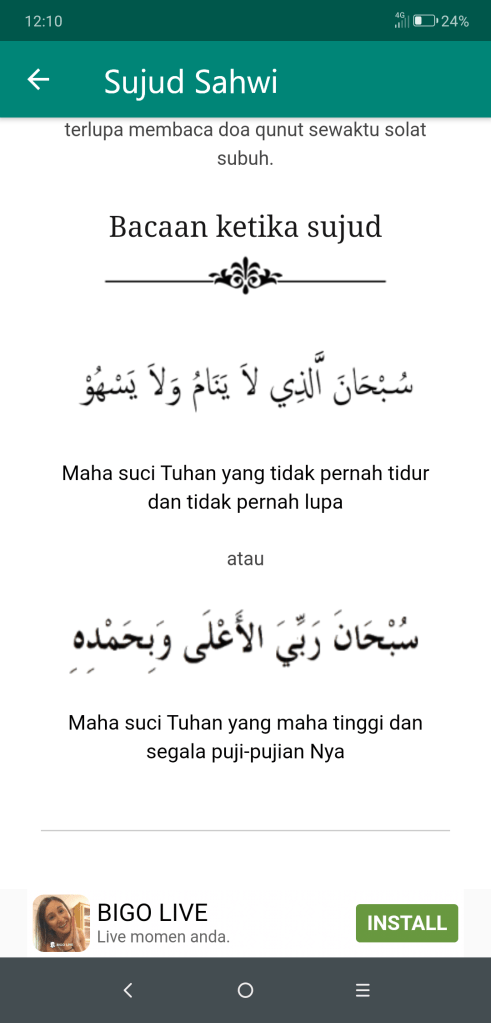 12:10
4G 24%
Sujud Sahwi
terlupa membaca doa qunut sewaktu solat
subuh.
Bacaan ketika sujud
سُبْحَانَ الَّذِي لاَ يَنَامُ وَلاَ يَسْهُوْ
Maha suci Tuhan yang tidak pernah tidur
dan tidak pernah lupa
atau
سُبْحَانَ رَبِّيَ الأَعْلَى وَبِحَمْدِهِ
Maha suci Tuhan yang maha tinggi dan
segala puji-pujian Nya
BIGO LIVE
Live momen anda.
INSTALL